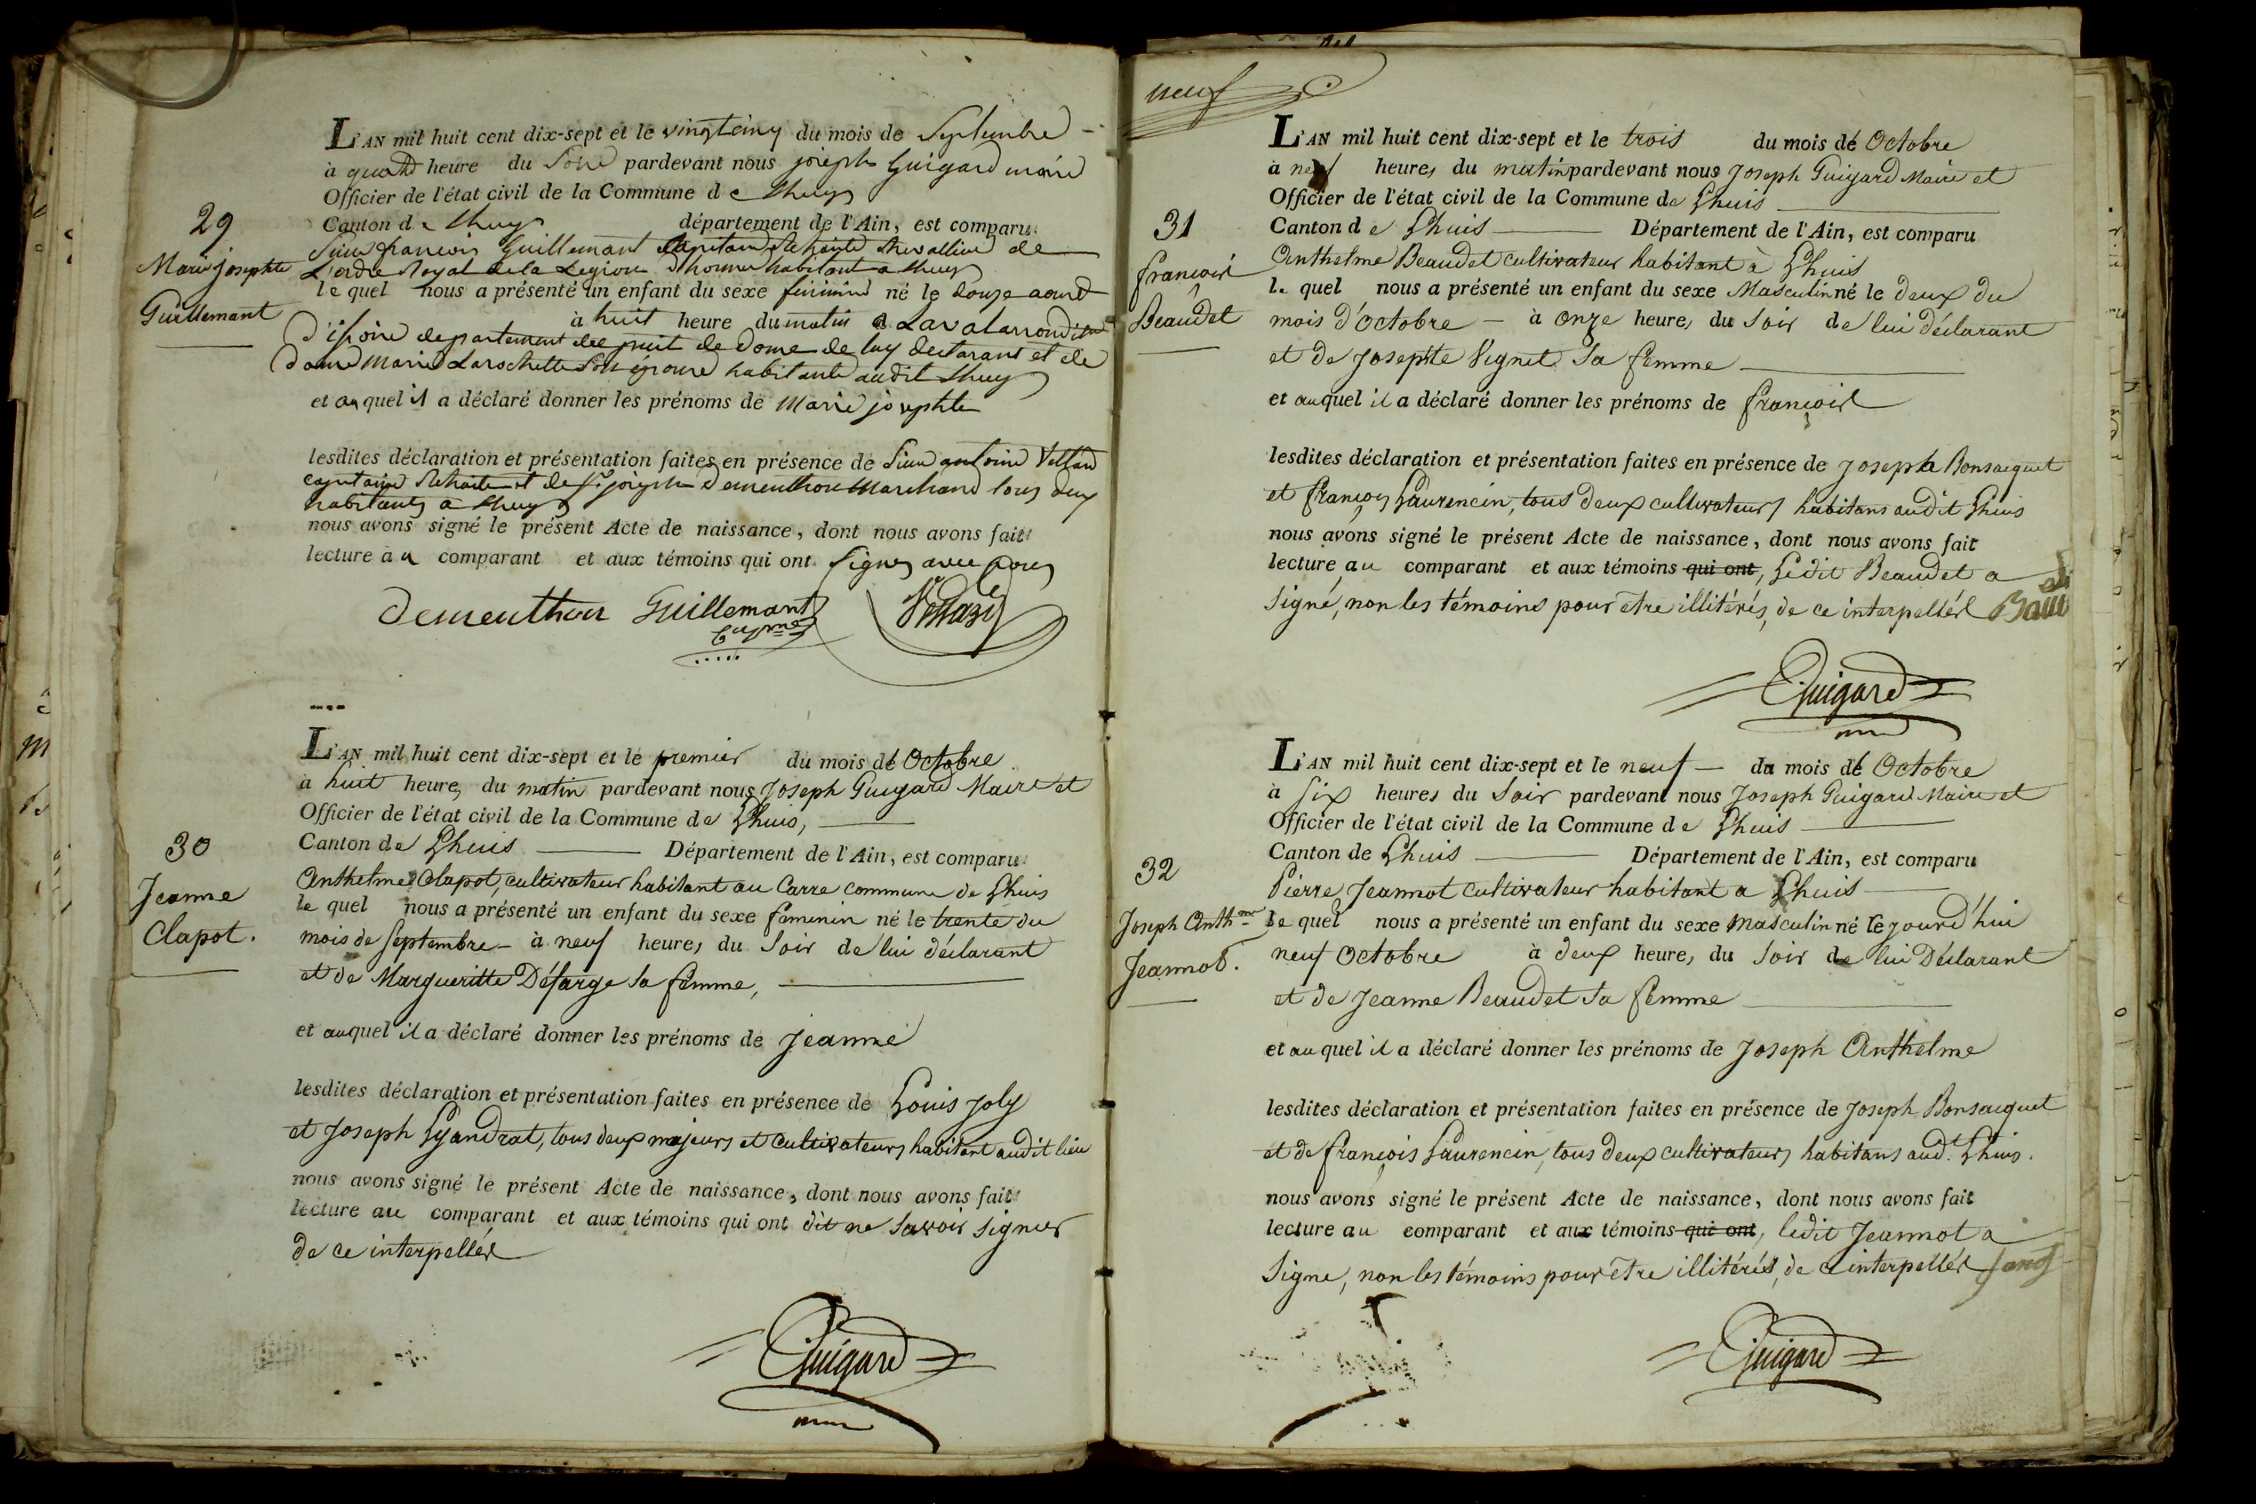 L'AN mil huit cent dix-sept et le vingtcinq du mois de Septembre
à quatre heure du Soir pardevant nous joseph Guigard maire
Officier de l'état civil de la Commune de Lhuys
Canton de Lhuys département de l'Ain, est comparu
29
Sieur francois Guillemant Capitaine Retraité chevallier de
L'ordre Royal de la Legion d'honneur habitant a Lhuys
Marie Josephte
Guillemant
le quel nous a présenté un enfant du sexe feminin né le douze aoust
à huit heure du matin a
d'isoire departement de de Dome de luy declarant et de
Dame Marie Larochette Son épouse habitante audit Lhuys
et auquel il a déclaré donner les prénoms de Marie josephte
lesdites déclaration et présentation faites en présence de Sieur antoine
capitaine Retraité et de Sr joseph Demeuthon Marchand tous deux
habitants a Lhuys
nous avons signé le présent Acte de naissance, dont nous avons fait
lecture au comparant et aux témoins qui ont Signés avec nous
Demeuthon Guillemant
L'AN mil huit cent dix-sept et le premier du mois de Octobre
à huit heures du matin pardevant nous Joseph Guigard Maire et
Officier de l'état civil de la Commune de Lhuis,
Canton de Lhuis Département de l'Ain, est comparu
30
Jeanne
Clapot.
Anthelme Clapot, cultivateur habitant au Carre commune de Lhuis
le quel nous a présenté un enfant du sexe feminin né le trente du
mois de Septembre - à neuf heures du Soir de lui déclarant
et de Margueritte Défarge sa femme,
et auquel il a déclaré donner les prénoms de Jeanne
lesdites déclaration et présentation faites en présence de Louis Joly
et Joseph Lyandrat, tous deux majeurs et cultivateurs habitant audit lieu
nous avons signé le présent Acte de naissance, dont nous avons fait
lecture au comparant et aux témoins qui ont dit ne savoir signer
de ce interpellés
Guigard
neuf
L'AN mil huit cent dix-sept et le trois du mois de Octobre
à neuf heures du matin pardevant nous Joseph Guigard Maire et
Officier de l'état civil de la Commune de Lhuis
Canton de Lhuis Département de l'Ain, est comparu
31
françois
Beaudet
Anthelme Beaudet cultivateur habitant à Lhuis
le quel nous a présenté un enfant du sexe Masculin né le deux du
mois d'Octobre - à onze heures du Soir de lui déclarant
et de Josephte Vignet sa femme
et auquel il a déclaré donner les prénoms de françois
lesdites déclaration et présentation faites en présence de Joseph Bonsacquet
et françois Laurencin, tous deux cultivateurs habitans audit Lhuis
nous avons signé le présent Acte de naissance, dont nous avons fait
lecture au comparant et aux témoins qui ont, Ledit Beaudet a
signé, non les témoins pour etre illitérés, de ce interpellés
Guigard
L'AN mil huit cent dix-sept et le neuf du mois de Octobre
à six heures du Soir pardevant nous Joseph Guigard Maire et
Officier de l'état civil de la Commune de Lhuis
Canton de Lhuis Département de l'Ain, est comparu
32
Joseph Anthme
Jeannot.
Pierre Jeannot cultivateur habitant a Lhuis
le quel nous a présenté un enfant du sexe Masculin né le jourd'hui
neuf Octobre à deux heures du Soir de lui Déclarant
et de Jeanne Beaudet sa femme
et auquel il a déclaré donner les prénoms de Joseph Anthelme
lesdites déclaration et présentation faites en présence de Joseph Bonsacquet
et de françois Laurencin, tous deux cultivateurs habitans audt Lhuis.
nous avons signé le présent Acte de naissance, dont nous avons fait
lecture au comparant et aux témoins qui ont, ledit Jeannot a
Signe, non les témoins pour etre illitérés, de ce interpellés
Guigard